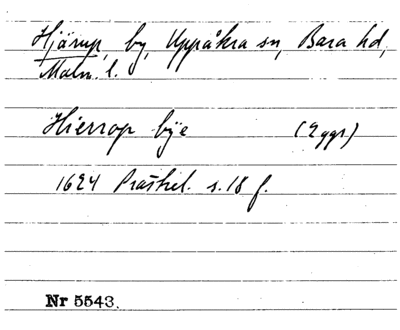 Hjärup, by, Uppåkra sn, Bara hd,
Malm. l.
Hierrop bÿe (2 ggr)
1624 Prästrel. s. 18 f.
Nr 5543.